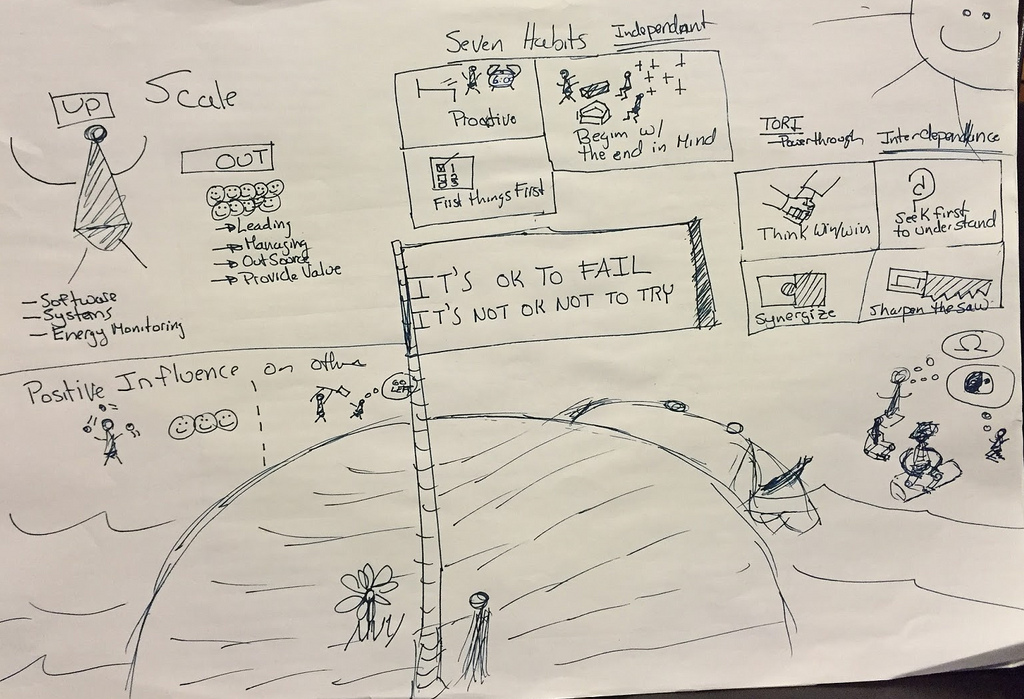 Scale
UP
OUT
Leading
Managing
OutSource
Provide Value
Software
Systems
Energy Monitoring
Seven Habits Independant
6:0
Proactive
Begin w/
the end in Mind
1
2
3
First things First
TORI
Powerthrough
Interdependance
Think Win/Win
Seek first
to understand
Synergize
Sharpen the Saw
IT'S OK TO FAIL
IT'S NOT OK NOT TO TRY
Positive Influence on others
GO
LEFT
Ω